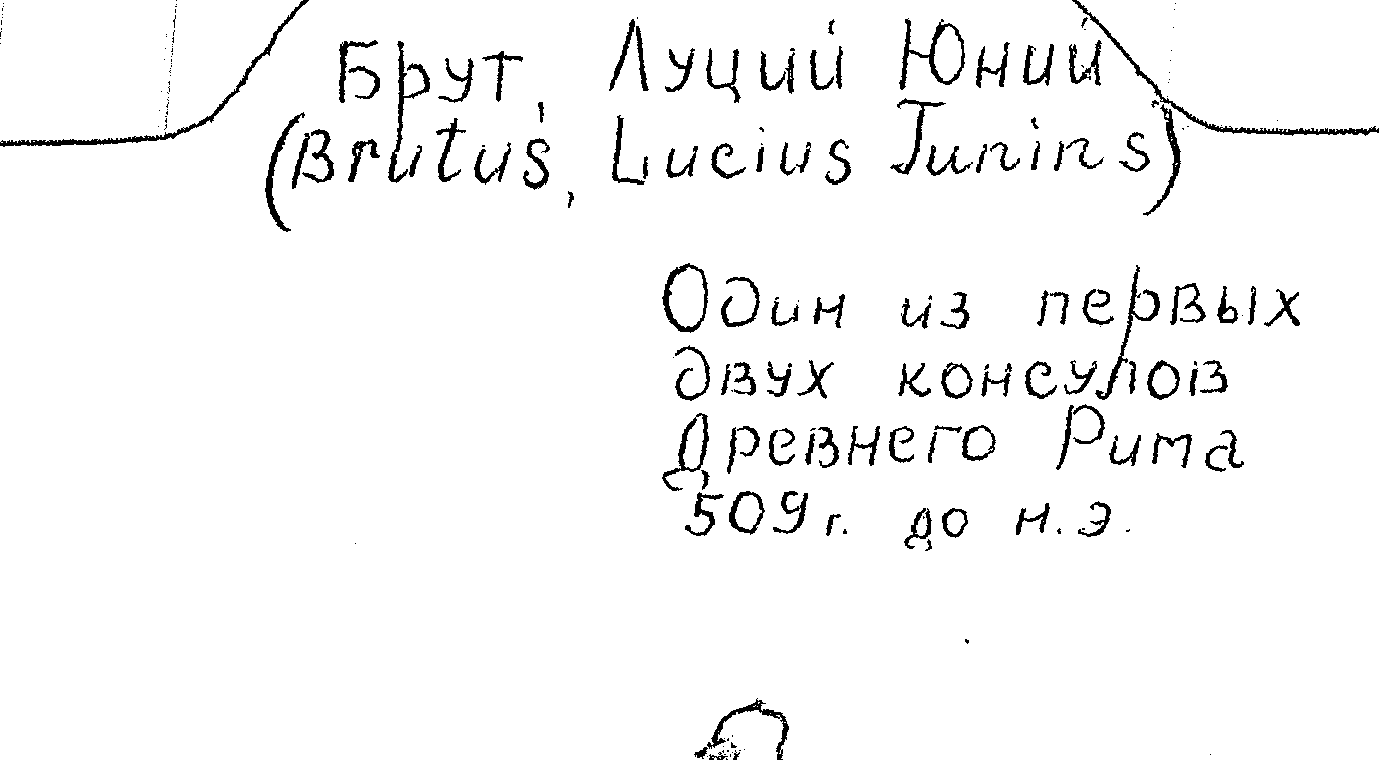 Брут, Луций Юний
(Brutus, Lucius Junins)
Один из первых
двух консулов
Древнего Рима
509 г. до н.э.